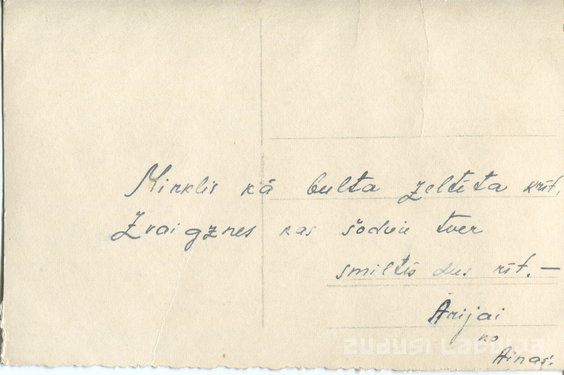 Mirklis kā bulta zeltīta krīt,
Zvaigznes kas šodien tver
smiltīs dus rīt. —
Ārijai
no
Ainas.
ZUDUSI LATVIJA